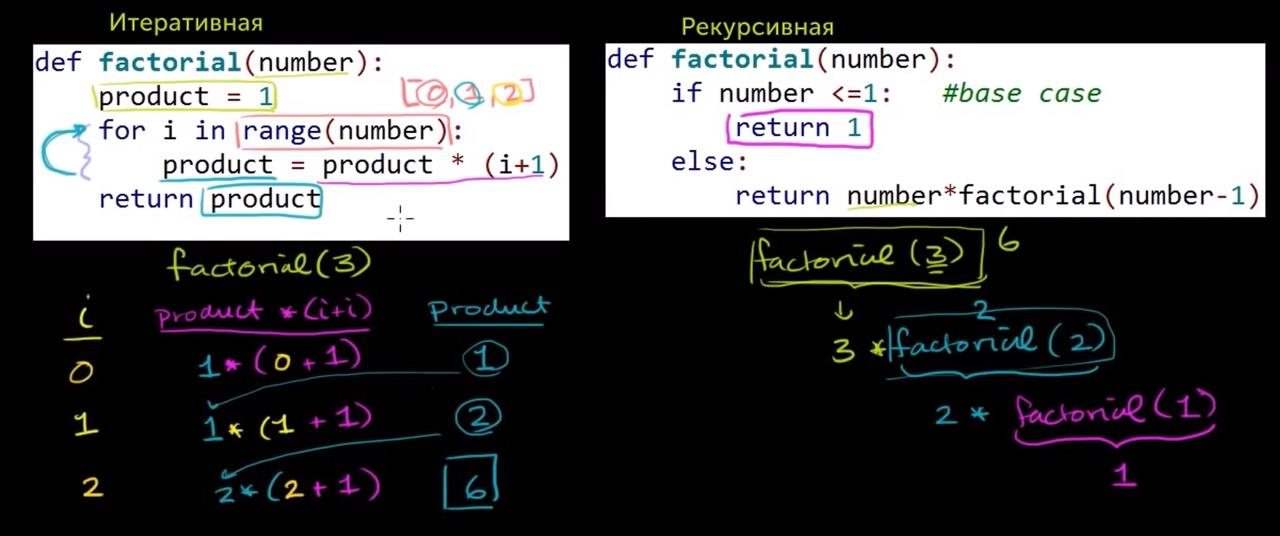 Итеративная
def factorial(number):
product = 1
[0,1,2]
for i in range(number):
product = product * (i+1)
return product
factorial(3)
i product *(i+i) product
0 1*(0+1) 1
1 1*(1+1) 2
2 2*(2+1) 6
Рекурсивная
def factorial(number):
if number <=1: #base case
return 1
else:
return number*factorial(number-1)
factorial(3) 6
2
3 *factorial(2)
2 * factorial(1)
1